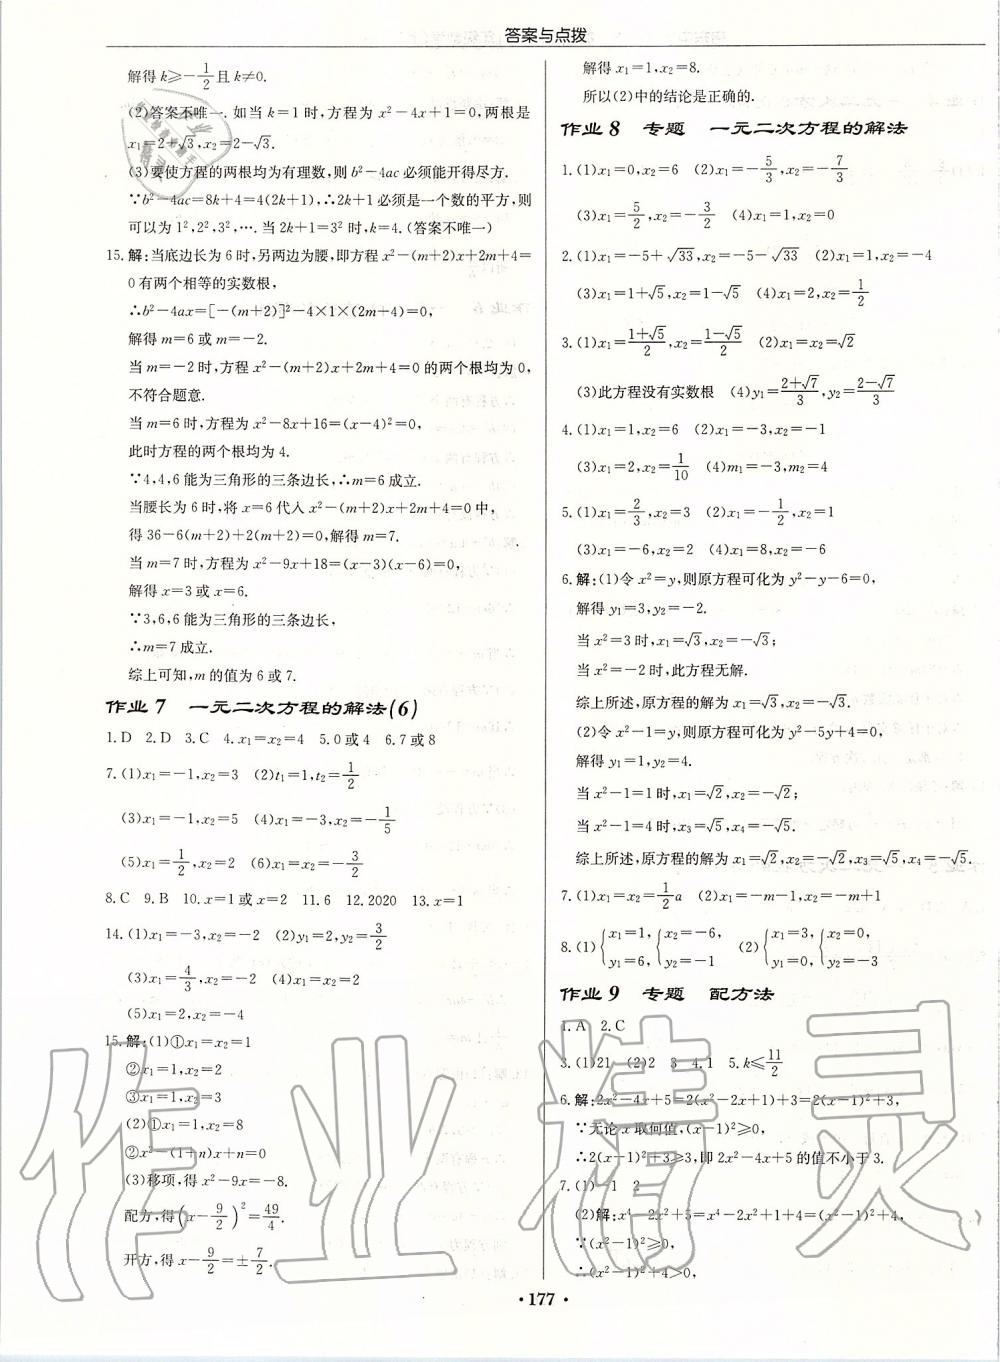 答案与点拨
解得k⩾-1/2且k≠0.
(2)答案不唯一.如当k=1时,方程为x²-4x+1=0,两根是
x₁=2+√3,x₂=2-√3.
(3)要使方程的两根均为有理数,则b²-4ac必须能开得尽方.
∵b²-4ac=8k+4=4(2k+1),∴2k+1必须是一个数的平方,则
可以为1²,2²,3²,….当2k+1=3²时,k=4.(答案不唯一)
15.解:当底边长为6时,另两边为腰,即方程x²-(m+2)x+2m+4=
0有两个相等的实数根,
∴b²-4ax=[-(m+2)]²-4×1×(2m+4)=0,
解得m=6或m=-2.
当m=-2时,方程x²-(m+2)x+2m+4=0的两个根均为0,
不符合题意.
当m=6时,方程为x²-8x+16=(x-4)²=0,
此时方程的两个根均为4.
∵4,4,6能为三角形的三条边长,∴m=6成立.
当腰长为6时,将x=6代入x²-(m+2)x+2m+4=0中,
得36-6(m+2)+2(m+2)=0,解得m=7.
当m=7时,方程为x²-9x+18=(x-3)(x-6)=0,
解得x=3或x=6.
∵3,6,6能为三角形的三条边长,
∴m=7成立.
综上可知,m的值为6或7.
作业7 一元二次方程的解法(6)
1.D 2.D 3.C 4.x₁=x₂=4 5.0或4 6.7或8
7.(1)x₁=-1,x₂=3 (2)t₁=1,t₂=1/2
(3)x₁=-1,x₂=5 (4)x₁=-3,x₂=-1/5
(5)x₁=1/2,x₂=2 (6)x₁=x₂=-3/2
8.C 9.B 10.x=1或x=2 11.6 12.2020 13.x=1
14.(1)x₁=-3,x₂=-2 (2)y₁=2,y₂=3/2
(3)x₁=4/3,x₂=-2 (4)x₁=x₂=2
(5)x₁=2,x₂=-4
15.解:(1)①x₁=x₂=1
②x₁=1,x₂=2
③x₁=1,x₂=3
(2)①x₁=1,x₂=8
②x²-(1+n)x+n=0
(3)移项,得x²-9x=-8.
配方,得(x-9/2)²=49/4.
开方,得x-9/2=±7/2.
解得x₁=1,x₂=8.
所以(2)中的结论是正确的.
作业8 专题 一元二次方程的解法
1.(1)x₁=0,x₂=6 (2)x₁=-5/3,x₂=-7/3
(3)x₁=5/2,x₂=-3/2 (4)x₁=1,x₂=0
2.(1)x₁=-5+√33,x₂=-5-√33 (2)x₁=1,x₂=-4
(3)x₁=1+√5,x₂=1-√5 (4)x₁=2,x₂=1/2
3.(1)x₁=(1+√5)/2,x₂=(1-√5)/2 (2)x₁=x₂=√2
(3)此方程没有实数根 (4)y₁=(2+√7)/3,y₂=(2-√7)/3
4.(1)x₁=1,x₂=6 (2)x₁=-3,x₂=-1
(3)x₁=2,x₂=1/10 (4)m₁=-3,m₂=4
5.(1)x₁=2/3,x₂=3 (2)x₁=-1/2,x₂=1
(3)x₁=-6,x₂=2 (4)x₁=8,x₂=-6
6.解:(1)令x²=y,则原方程可化为y²-y-6=0,
解得y₁=3,y₂=-2.
当x²=3时,x₁=√3,x₂=-√3;
当x²=-2时,此方程无解.
综上所述,原方程的解为x₁=√3,x₂=-√3.
(2)令x²-1=y,则原方程可化为y²-5y+4=0,
解得y₁=1,y₂=4.
当x²-1=1时,x₁=√2,x₂=-√2;
当x²-1=4时,x₃=√5,x₄=-√5.
综上所述,原方程的解为x₁=√2,x₂=-√2,x₃=√5,x₄=-√5.
7.(1)x₁=x₂=1/2a (2)x₁=-m-1,x₂=-m+1
8.(1){x₁=1, {x₂=-6, (2){x₁=3, {x₂=0,
y₁=6, y₂=-1 y₁=0, y₂=-3
作业9 专题 配方法
1.A 2.C
3.(1)21 (2)2 3 4.1 5.k⩽11/2
6.解:2x²-4x+5=2(x²-2x+1)+3=2(x-1)²+3,
∵无论x取何值,(x-1)²⩾0,
∴2(x-1)²+3⩾3,即2x²-4x+5的值不小于3.
7.(1)-1 2
(2)解:x⁴-2x²+5=x⁴-2x²+1+4=(x²-1)²+4,
∵(x²-1)²⩾0,
∴(x²-1)²+4>0,
·177·
作业精灵